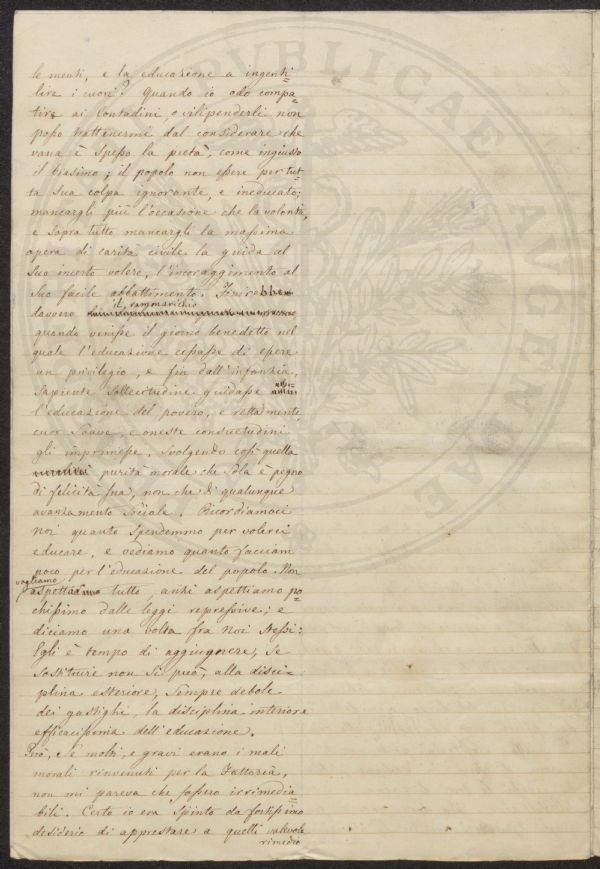 le menti, e la educazione a ingenti=
lire i cuori? Quando io odo compa=
tire ai Contadini o vilipenderli non
posso trattenermi dal considerare che
vana è spesso la pietà, come ingiusto
il biasimo; il popolo non essere per tut=
ta sua colpa ignorante, e ineducato;
mancargli più l'occasione che la volontà,
e sopra tutto mancargli la massima
opera di carità civile la guida al
suo incerto volere, l'incoraggimento al
suo facile abbattimento. Finirebbe
davvero il rammarichio
quando venisse il giorno benedetto nel
quale l'educazione cessasse di essere
un privilegio, e fin dall'infanzia,
sapiente sollecitudine guidasse
l'educazione del povero, e rettamente
cuor soave e oneste consuetudini
gli imprimesse, svolgendo così quella
purità morale che sola è pegno
di felicità sua, non che di qualunque
avanzamento sociale. Ricordiamoci
noi quanto spendemmo per volerci
educare, e vediamo quanto facciam
poco per l'educazione del popolo. Non
vogliamo
aspettar tutto, anzi aspettiamo po=
chissimo dalle leggi repressive; e
diciamo una volta fra noi stessi:
Egli è tempo di aggiugnere, se
sostituire non si può, alla disci=
plina esteriore, sempre debole
dei gastighi, la disciplina interiore
efficacissima dell'educazione.
Però, se molti, e gravi erano i mali
morali rinvenuti per la Fattoria,
non mi pareva che fossero irrimedia=
bili. Certo io era spinto da fortissimo
desiderio di apprestare a quelli valevole
rimedio
PUBLICAE